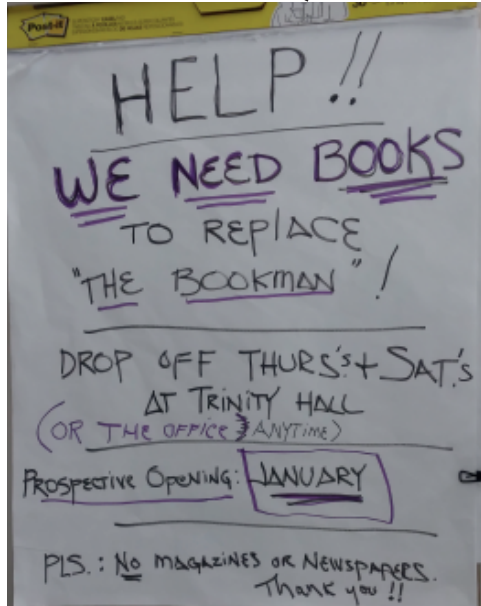 Post-it
HELP!!
WE NEED BOOKS
TO REPLACE
"THE BOOKMAN"!
DROP OFF THURS'S + SAT'S
AT TRINITY HALL
(OR THE OFFICE ANYTIME)
PROSPECTIVE OPENING: JANUARY
PLS.: NO MAGAZINES OR NEWSPAPERS.
Thank you!!